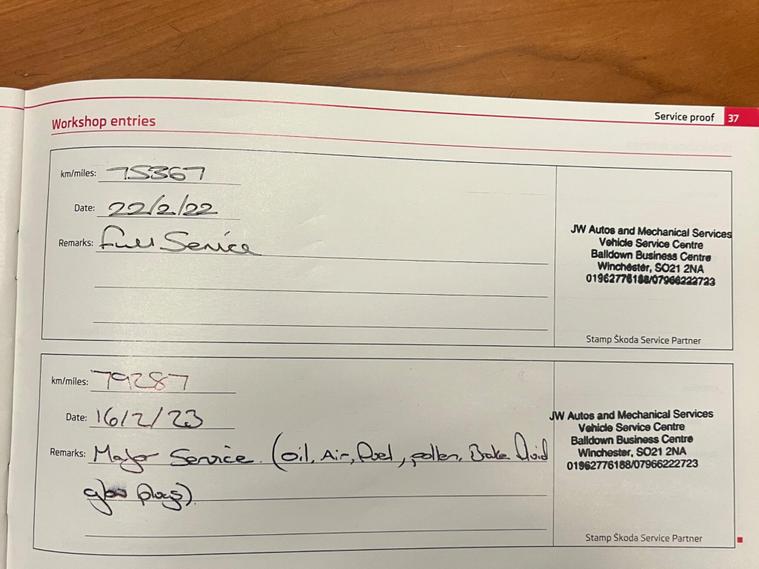 Service proof 37
Workshop entries
km/miles: 75367
Date: 22/2/22
Remarks: Full Service
JW Autos and Mechanical Services
Vehicle Service Centre
Balldown Business Centre
Winchester, SO21 2NA
01962776188/07966222723
Stamp Škoda Service Partner
km/miles: 79287
Date: 16/2/23
Remarks: Major Service (oil, Air, fuel, pollen, Brake fluid
glow plugs)
JW Autos and Mechanical Services
Vehicle Service Centre
Balldown Business Centre
Winchester, SO21 2NA
01962776188/07966222723
Stamp Škoda Service Partner